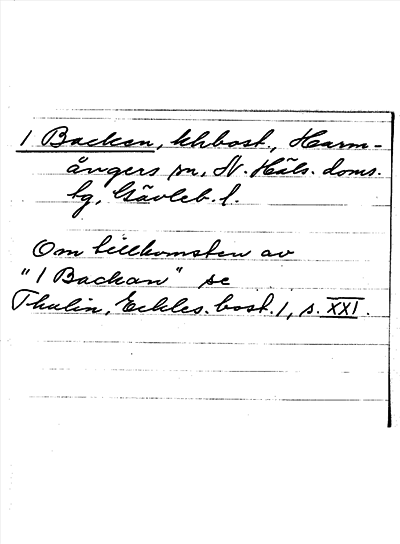 1 Backan, khbost., Harm-
ångers sn, N. Häls. doms.
tg, Gävleb. l.
Om tillkomsten av
"1 Backan" se
Thulin, Eckles. bost. 1, s. XXI.